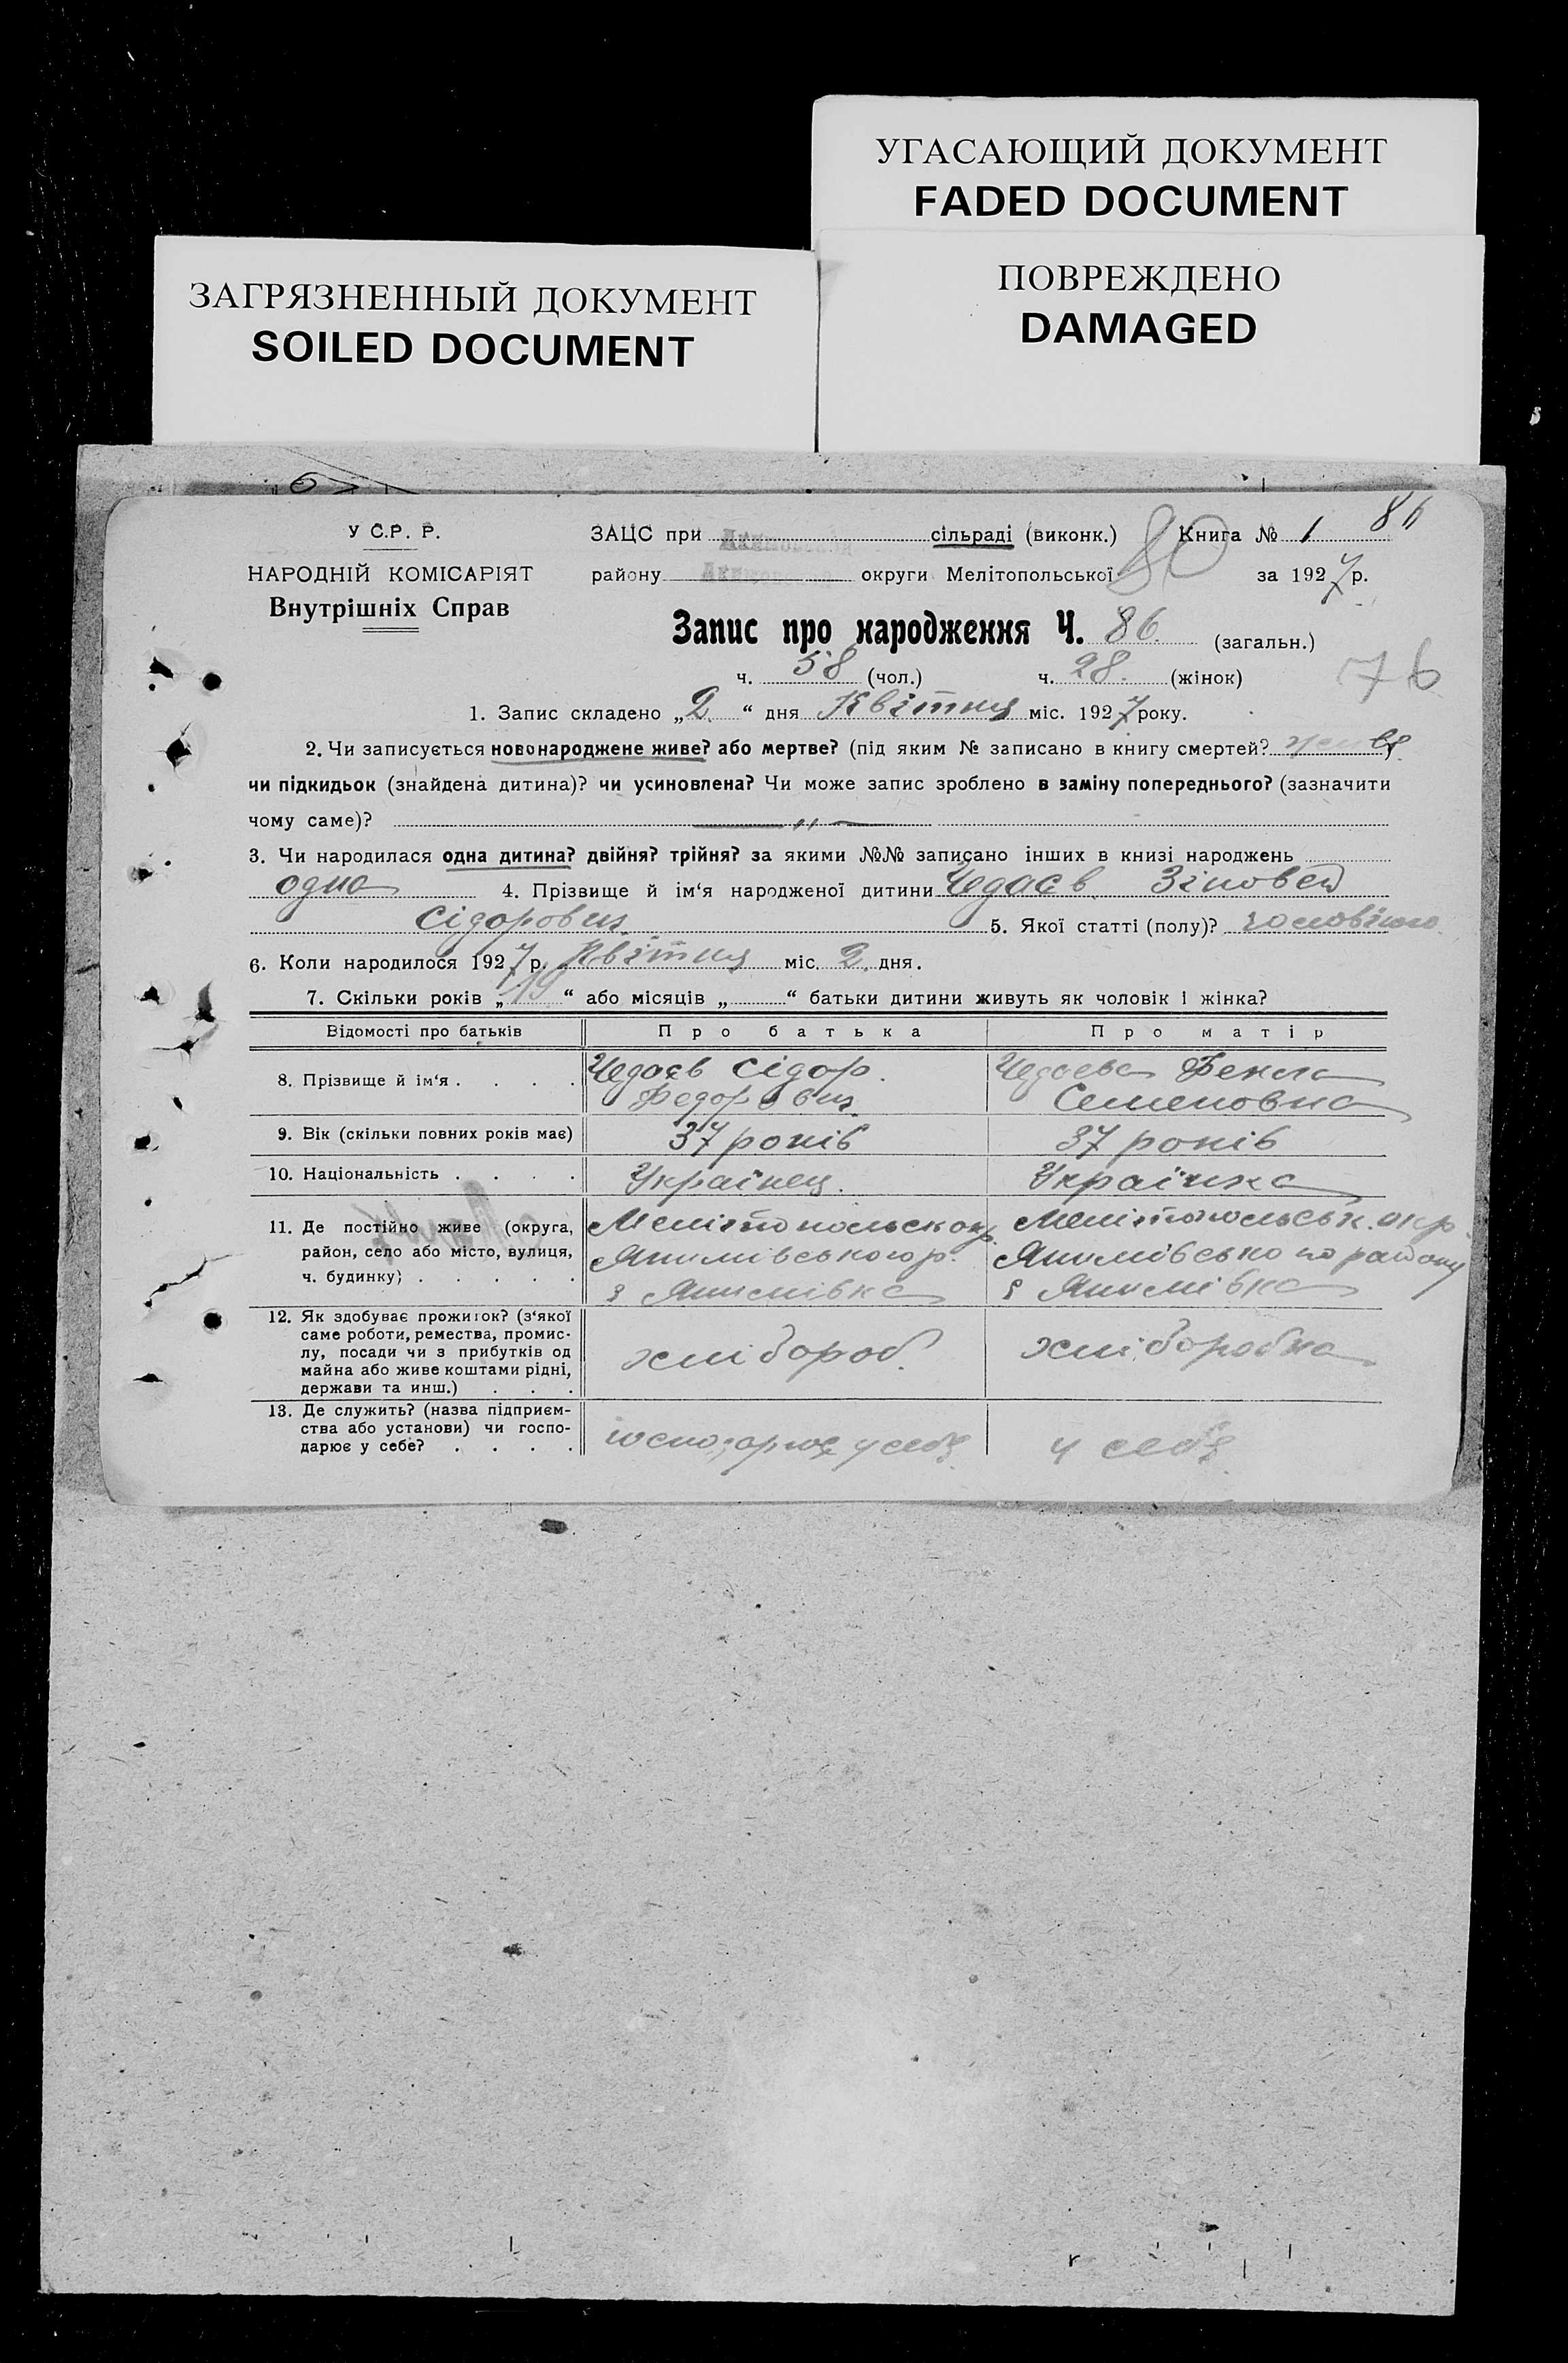 УГАСАЮЩИЙ ДОКУМЕНТ
FADED DOCUMENT
ЗАГРЯЗНЕННЫЙ ДОКУМЕНТ
SOILED DOCUMENT
ПОВРЕЖДЕНО
DAMAGED
У С.Р. Р.
НАРОДНІЙ КОМІСАРІЯТ
Внутрішніх Справ
ЗАЦС при сільраді (виконк.) 80 Книга № 1 86
району округи Мелітопольської за 1927 р.
Запис про народження Ч. 86 (загальн.)
ч. 58 (чол.) ч. 28. (жінок) 76
1. Запис складено „2“ дня Квітня міс. 1927 року.
2. Чи записується новонароджене живе? або мертве? (під яким № записано в книгу смертей? живе
чи підкидьок (знайдена дитина)? чи усиновлена? Чи може запис зроблено в заміну попереднього? (зазначити
чому саме)? — " —
3. Чи народилася одна дитина? двійня? трійня? за якими №№ записано інших в книзі народжень
одна 4. Прізвище й ім'я народженої дитини Чедаєв Зіновей
Сідорович 5. Якої статті (полу)? чоловічого
6. Коли народилося 1927 р. Квітня міс. 2. дня.
7. Скільки років „19“ або місяців „ “ батьки дитини живуть як чоловік і жінка?
Відомості про батьків Про батька Про матір
8. Прізвище й ім'я . . . . Чедаєв Сідор Федорович Чедаева Фекла Семеновна
9. Вік (скільки повних років має) 37 років 37 років
10. Національність . . . . Українец. Українка
11. Де постійно живе (округа, Мелітопольск окр. Мелітопольськ. окр.
район, село або місто, вулиця, Якимівського р. Якимівського району
ч. будинку) . . . . . Якимівка Якимівка
12. Як здобуває прожиток? (з'якої
саме роботи, ремества, промис-
лу, посади чи з прибутків од хлібороб. хліборобка
майна або живе коштами рідні,
держави та инш.) . . .
13. Де служить? (назва підприєм-
ства або установи) чи госпо-
дарює у себе? . . . . господарює у себе у себе